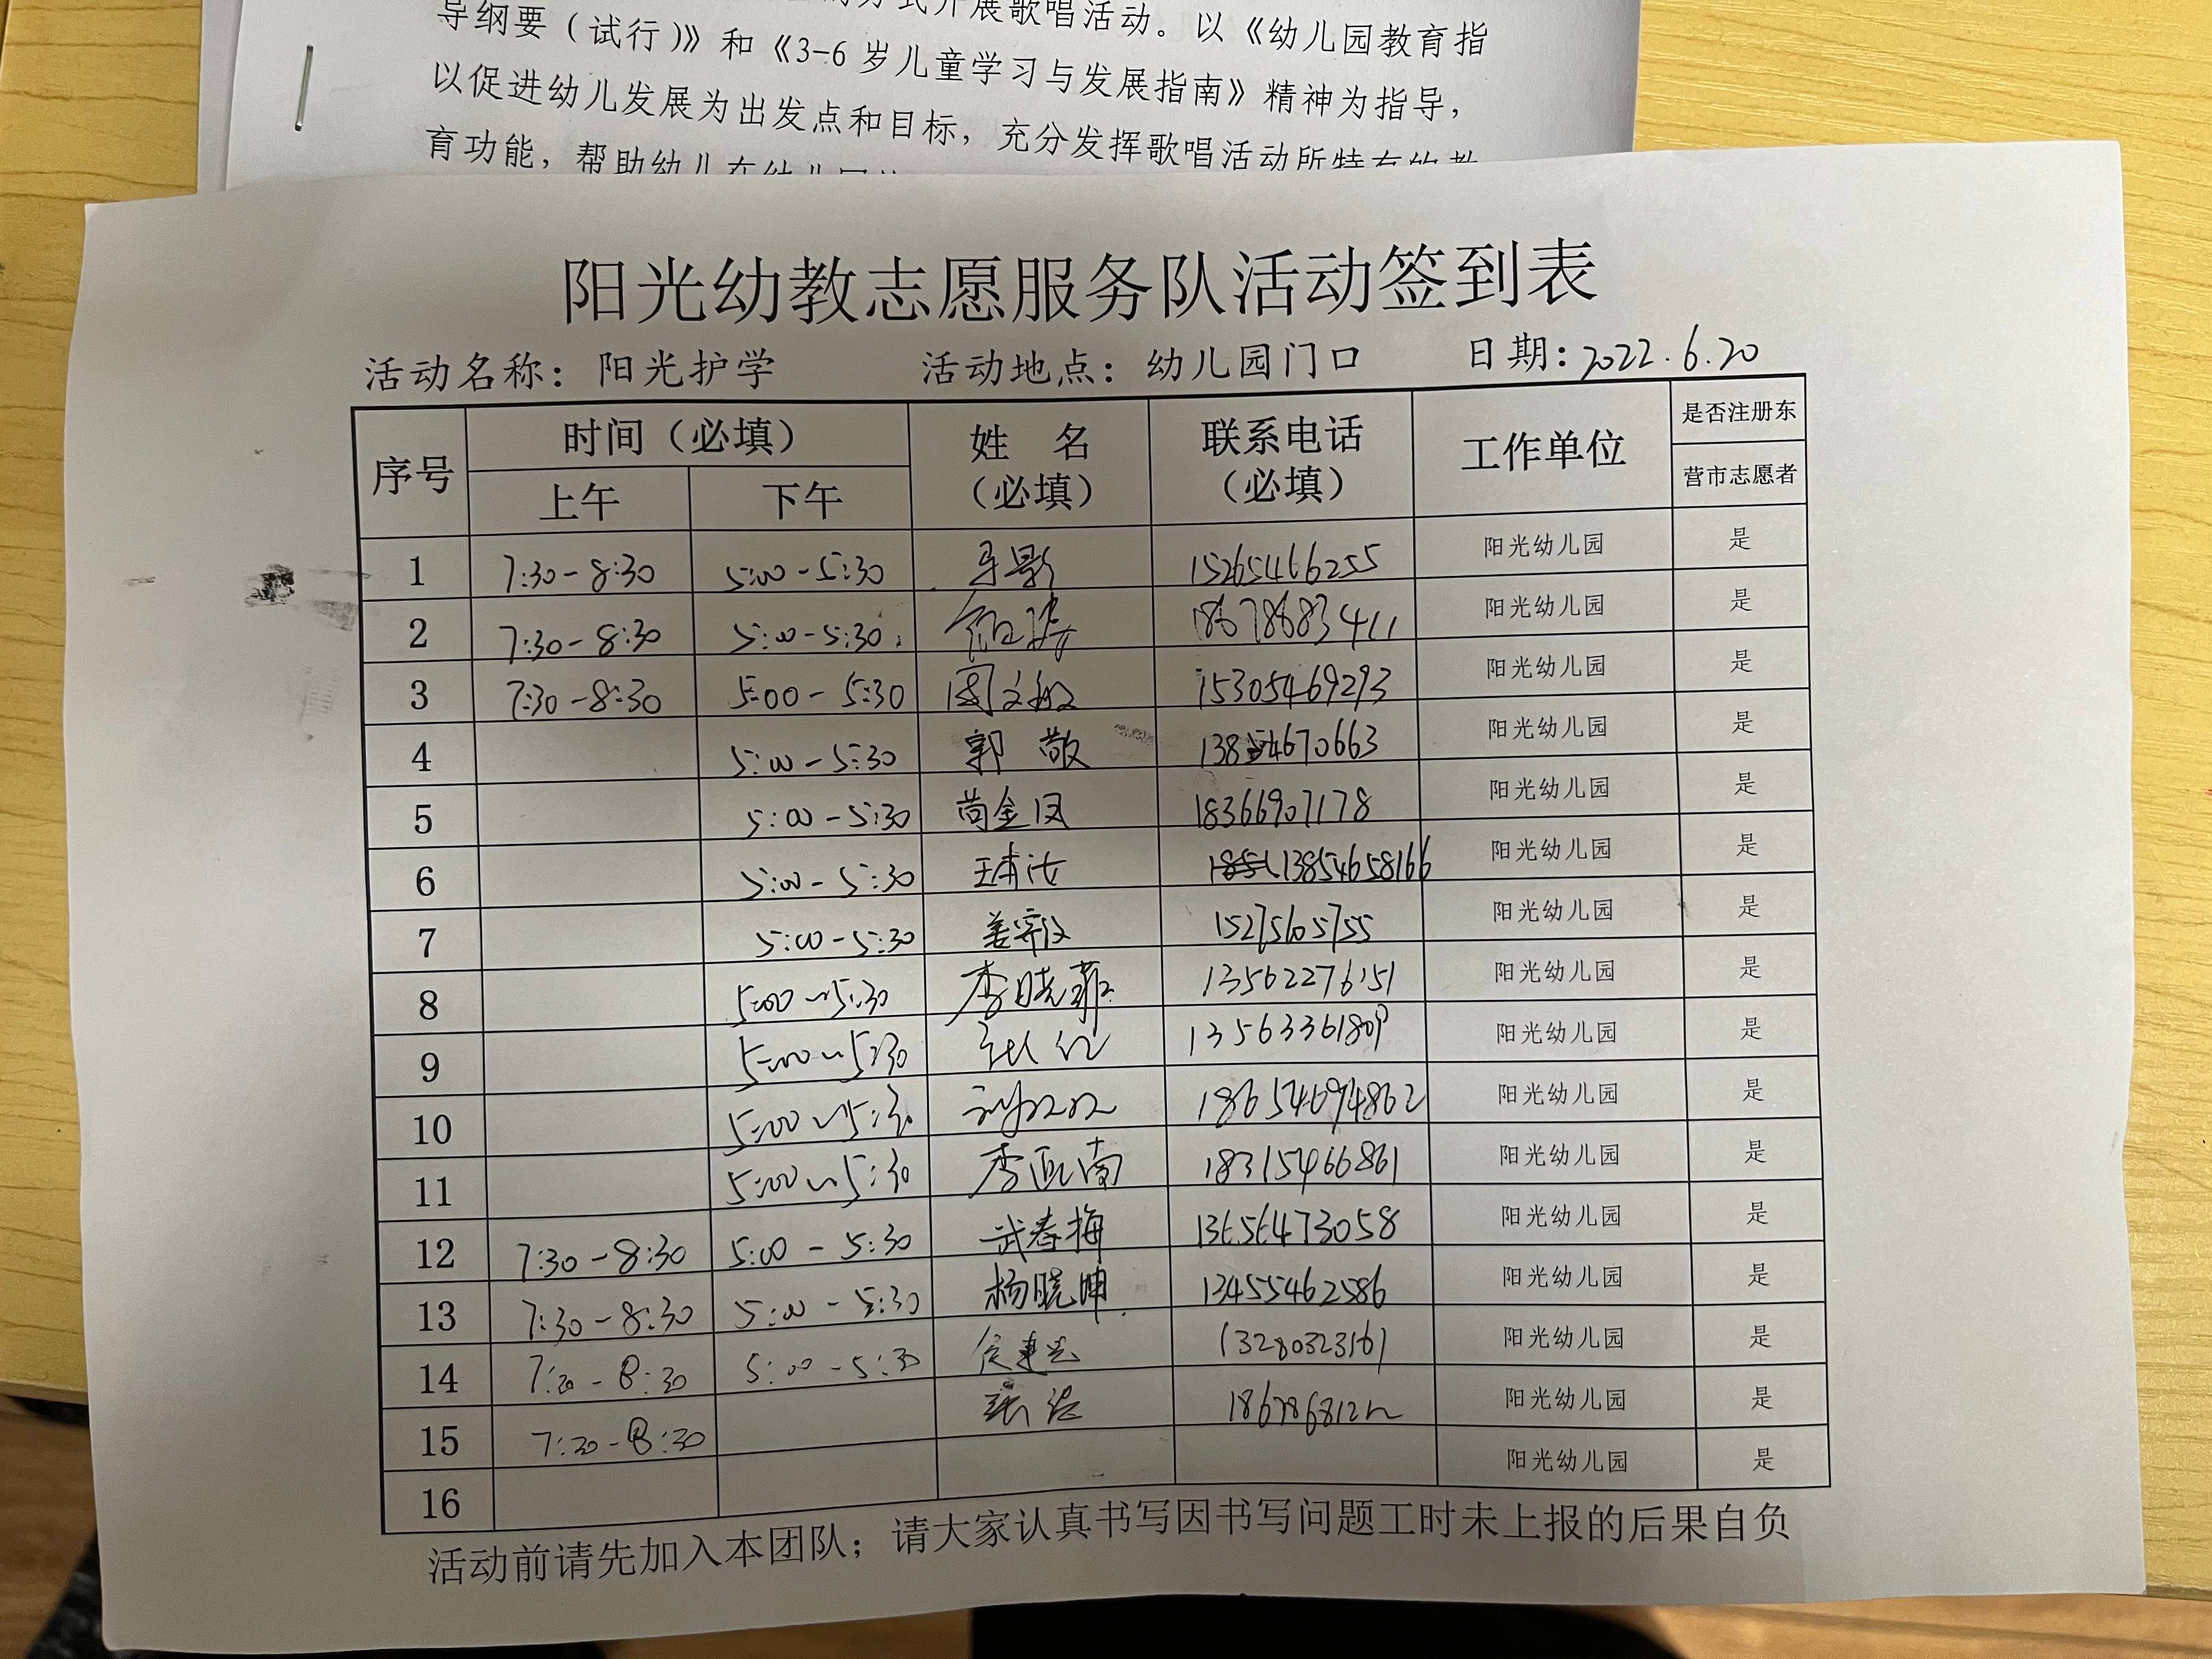 方式开展歌唱活动。以《幼儿园教育指
导纲要（试行）》和《3-6岁儿童学习与发展指南》精神为指导，
以促进幼儿发展为出发点和目标，充分发挥歌唱活动所特有的教
育功能，帮助幼儿在幼儿园
阳光幼教志愿服务队活动签到表
活动名称：阳光护学 活动地点：幼儿园门口 日期：2022.6.20
序号 时间（必填） 上午 下午 姓 名（必填） 联系电话（必填） 工作单位 是否注册东营市志愿者
1 7:30-8:30 5:00-5:30 15265466255 阳光幼儿园 是
2 7:30-8:30 5:00-5:30 18678683411 阳光幼儿园 是
3 7:30-8:30 5:00-5:30 15305469293 阳光幼儿园 是
4 5:00-5:30 郭敬 13854670663 阳光幼儿园 是
5 5:00-5:30 尚金凤 18366907178 阳光幼儿园 是
6 5:00-5:30 13854658166 阳光幼儿园 是
7 5:00-5:30 15275605755 阳光幼儿园 是
8 5:00~5:30 李晓菲 13562276151 阳光幼儿园 是
9 5:00~5:30 张红 13563361809 阳光幼儿园 是
10 5:00~5:30 刘双双 18654694862 阳光幼儿园 是
11 5:00~5:30 李亚南 18315466861 阳光幼儿园 是
12 7:30-8:30 5:00-5:30 武春梅 13656473058 阳光幼儿园 是
13 7:30-8:30 5:00-5:30 杨晓坤 13455462586 阳光幼儿园 是
14 7:30-8:30 5:00-5:30 13280323161 阳光幼儿园 是
15 7:30-8:30 阳光幼儿园 是
16 阳光幼儿园 是
活动前请先加入本团队；请大家认真书写因书写问题工时未上报的后果自负